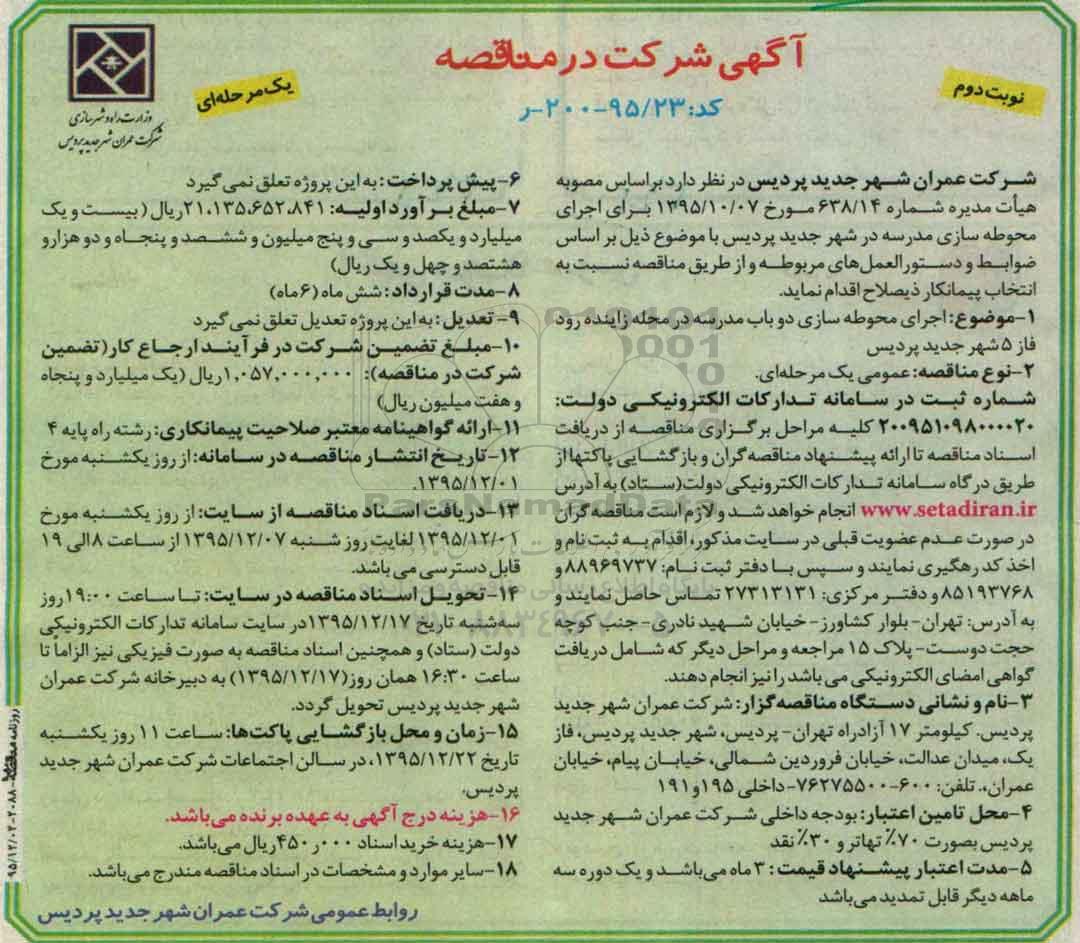 آگهی شرکت در مناقصه
کد: ۹۵/۲۳-۲۰۰-ر
نوبت دوم
یک مرحله‌ای
وزارت راه و شهرسازی
شرکت عمران شهر جدید پردیس
شرکت عمران شهر جدید پردیس در نظر دارد براساس مصوبه
هیأت مدیره شماره ۶۳۸/۱۴ مورخ ۱۳۹۵/۱۰/۰۷ برای اجرای
محوطه سازی مدرسه در شهر جدید پردیس با موضوع ذیل بر اساس
ضوابط و دستورالعمل‌های مربوطه و از طریق مناقصه نسبت به
انتخاب پیمانکار ذیصلاح اقدام نماید.
۱-موضوع: اجرای محوطه سازی دو باب مدرسه در محله زاینده رود
فاز ۵ شهر جدید پردیس
۲-نوع مناقصه: عمومی یک مرحله‌ای.
شماره ثبت در سامانه تدارکات الکترونیکی دولت:
۲۰۰۹۵۱۰۹۸۰۰۰۰۲۰ کلیه مراحل برگزاری مناقصه از دریافت
اسناد مناقصه تا ارائه پیشنهاد مناقصه‌گران و بازگشایی پاکتها از
طریق درگاه سامانه تدارکات الکترونیکی دولت(ستاد) به آدرس
www.setadiran.ir انجام خواهد شد و لازم است مناقصه گران
در صورت عدم عضویت قبلی در سایت مذکور، اقدام به ثبت نام و
اخذ کد رهگیری نمایند و سپس با دفتر ثبت نام: ۸۸۹۶۹۷۳۷ و
۸۵۱۹۳۷۶۸ و دفتر مرکزی: ۲۷۳۱۳۱۳۱ تماس حاصل نمایند و
به آدرس: تهران- بلوار کشاورز- خیابان شهید نادری- جنب کوچه
حجت دوست- پلاک ۱۵ مراجعه و مراحل دیگر که شامل دریافت
گواهی امضای الکترونیکی می باشد را نیز انجام دهند.
۳-نام و نشانی دستگاه مناقصه‌گزار: شرکت عمران شهر جدید
پردیس. کیلومتر ۱۷ آزادراه تهران- پردیس، شهر جدید پردیس، فاز
یک، میدان عدالت، خیابان فروردین شمالی، خیابان پیام، خیابان
عمران،. تلفن: ۶۰۰-۷۶۲۷۵۵۰۰-داخلی ۱۹۵ و ۱۹۱
۴-محل تامین اعتبار: بودجه داخلی شرکت عمران شهر جدید
پردیس بصورت ۷۰٪ تهاتر و ۳۰٪ نقد
۵-مدت اعتبار پیشنهاد قیمت: ۳ ماه می‌باشد و یک دوره سه
ماهه دیگر قابل تمدید می‌باشد
۶-پیش پرداخت: به این پروژه تعلق نمی گیرد
۷-مبلغ برآورد اولیه: ۲۱،۱۳۵،۶۵۲،۸۴۱ ریال (بیست و یک
میلیارد و یکصد و سی و پنج میلیون و ششصد و پنجاه و دو هزار و
هشتصد و چهل و یک ریال)
۸-مدت قرارداد: شش ماه (۶ ماه)
۹- تعدیل: به این پروژه تعدیل تعلق نمی گیرد
۱۰-مبلغ تضمین شرکت در فرآیند ارجاع کار(تضمین
شرکت در مناقصه): ۱،۰۵۷،۰۰۰،۰۰۰ ریال (یک میلیارد و پنجاه
و هفت میلیون ریال)
۱۱-ارائه گواهینامه معتبر صلاحیت پیمانکاری: رشته راه پایه ۴
۱۲-تاریخ انتشار مناقصه در سامانه: از روز یکشنبه مورخ
۱۳۹۵/۱۲/۰۱.
۱۳-دریافت اسناد مناقصه از سایت: از روز یکشنبه مورخ
۱۳۹۵/۱۲/۰۱ لغایت روز شنبه ۱۳۹۵/۱۲/۰۷ از ساعت ۸ الی ۱۹
قابل دسترسی می باشد.
۱۴-تحویل اسناد مناقصه در سایت: تا ساعت ۱۹:۰۰ روز
سه‌شنبه تاریخ ۱۳۹۵/۱۲/۱۷ در سایت سامانه تدارکات الکترونیکی
دولت (ستاد) و همچنین اسناد مناقصه به صورت فیزیکی نیز الزاما تا
ساعت ۱۶:۳۰ همان روز(۱۳۹۵/۱۲/۱۷) به دبیرخانه شرکت عمران
شهر جدید پردیس تحویل گردد.
۱۵-زمان و محل بازگشایی پاکت‌ها: ساعت ۱۱ روز یکشنبه
تاریخ ۱۳۹۵/۱۲/۲۲، در سالن اجتماعات شرکت عمران شهر جدید
پردیس.
۱۶-هزینه درج آگهی به عهده برنده می‌باشد.
۱۷-هزینه خرید اسناد ۴۵۰ر۰۰۰ ریال می‌باشد.
۱۸-سایر موارد و مشخصات در اسناد مناقصه مندرج می‌باشد.
روابط عمومی شرکت عمران شهر جدید پردیس
ParsNamadData
۹۵/۱۲/۰۲